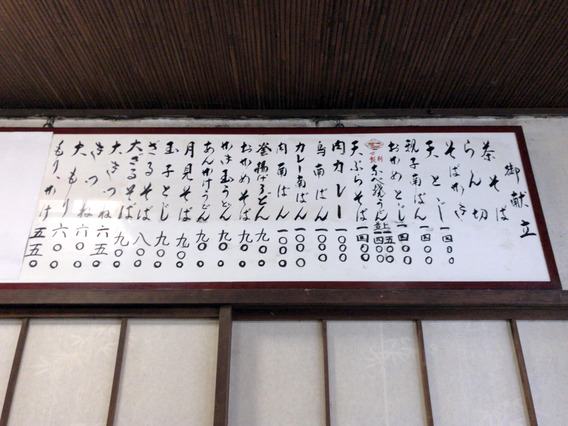 御献立
茶そば
らん切
そばがき 一四〇〇
天とじ 一四〇〇
親子南ばん 一四〇〇
おかめとじ
特製 なべ焼うどん 上一五〇〇 並一四〇〇
天ぷらそば 一四〇〇
肉カレー 一〇〇〇
鳥南ばん 一〇〇〇
カレー南ばん 一〇〇〇
肉南ばん 一〇〇〇
釜揚げうどん 九〇〇
おかめそば 九〇〇
かき玉うどん 九〇〇
あんかけうどん 九〇〇
月見そば 九〇〇
玉子とじ 九〇〇
ざるそば 八〇〇
大ざるそば 九〇〇
大きつね
きつね 六五〇
大もり 六〇〇
もり、かけ 五五〇